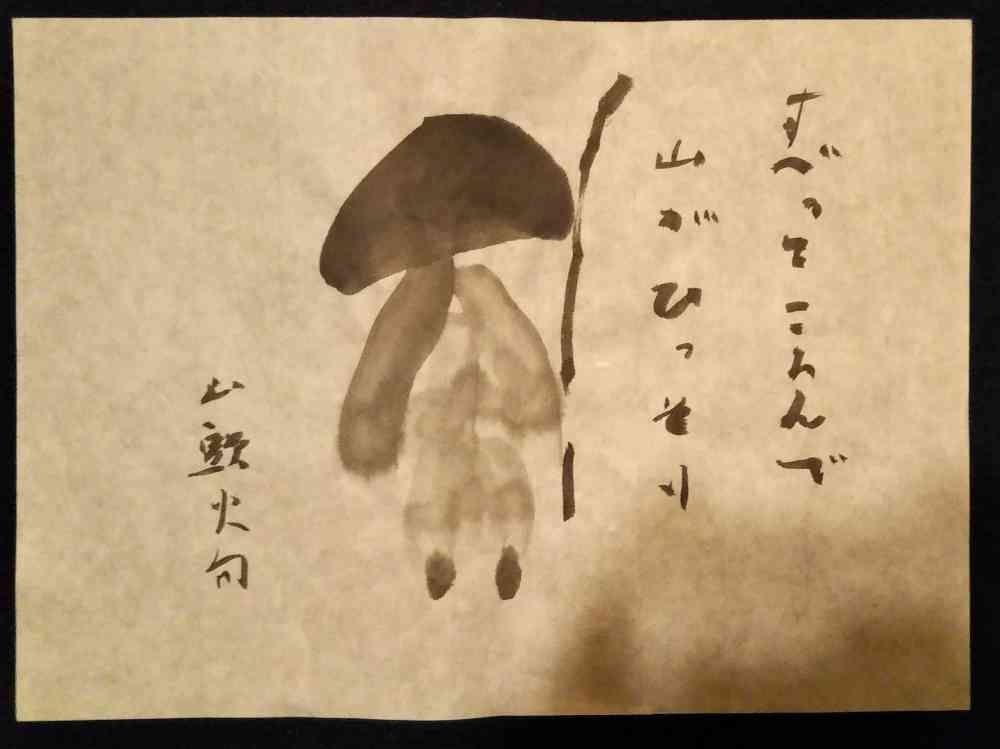 すべってころんで
山がひっそり
山頭火句